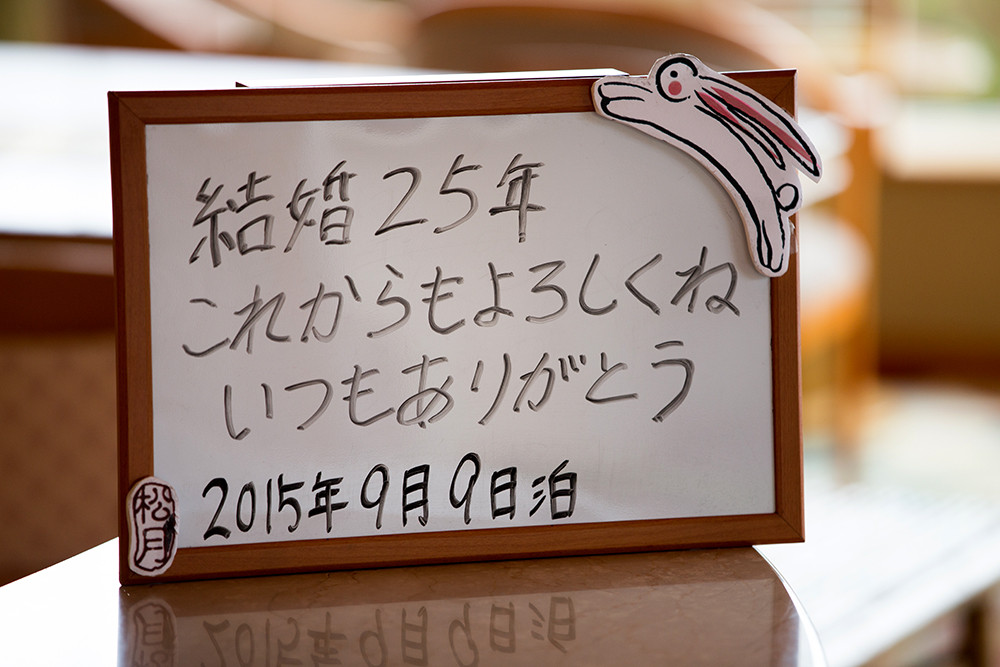 結婚25年
これからもよろしくね
いつもありがとう
2015年9月9日泊
松月